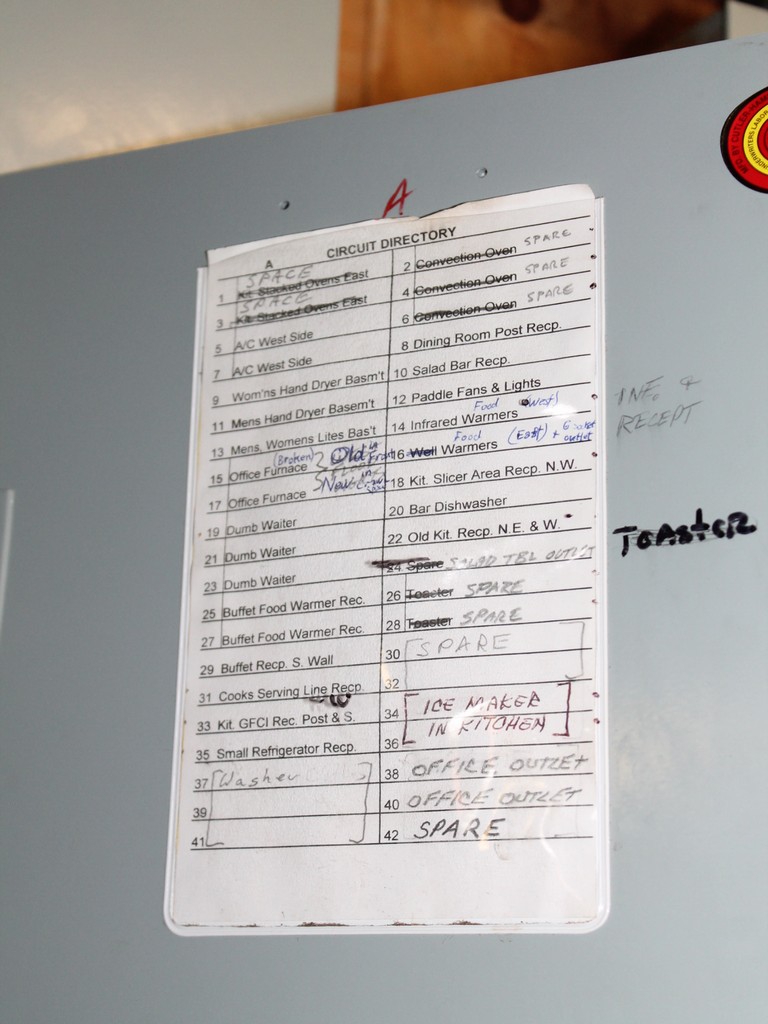 MFD. BY CUTLER-HAM
UNDERWRITERS LABOR
A
CIRCUIT DIRECTORY
A
SPACE
1 Kit. Stacked Ovens East
SPACE
3 Kit. Stacked Ovens East
5 A/C West Side
7 A/C West Side
9 Wom'ns Hand Dryer Basm't
11 Mens Hand Dryer Basem't
13 Mens, Womens Lites Bas't
(Broken) Old in Front
15 Office Furnace
New in Crawl
17 Office Furnace
19 Dumb Waiter
21 Dumb Waiter
23 Dumb Waiter
25 Buffet Food Warmer Rec.
27 Buffet Food Warmer Rec.
29 Buffet Recp. S. Wall
31 Cooks Serving Line Recp.
33 Kit. GFCI Rec. Post & S.
35 Small Refrigerator Recp.
37 Washer
39
41
2 Convection Oven SPARE
4 Convection Oven SPARE
6 Convection Oven SPARE
8 Dining Room Post Recp.
10 Salad Bar Recp.
12 Paddle Fans & Lights
Food (West)
14 Infrared Warmers
Food (East) + outlet
16 Well Warmers
18 Kit. Slicer Area Recp. N.W.
20 Bar Dishwasher
22 Old Kit. Recp. N.E. & W.
24 Spare SALAD TBL OUTLET
26 Toaster SPARE
28 Toaster SPARE
30 SPARE
32
34 ICE MAKER
36 IN KITCHEN
38 OFFICE OUTLET
40 OFFICE OUTLET
42 SPARE
INF. &
RECEPT
TOASTER